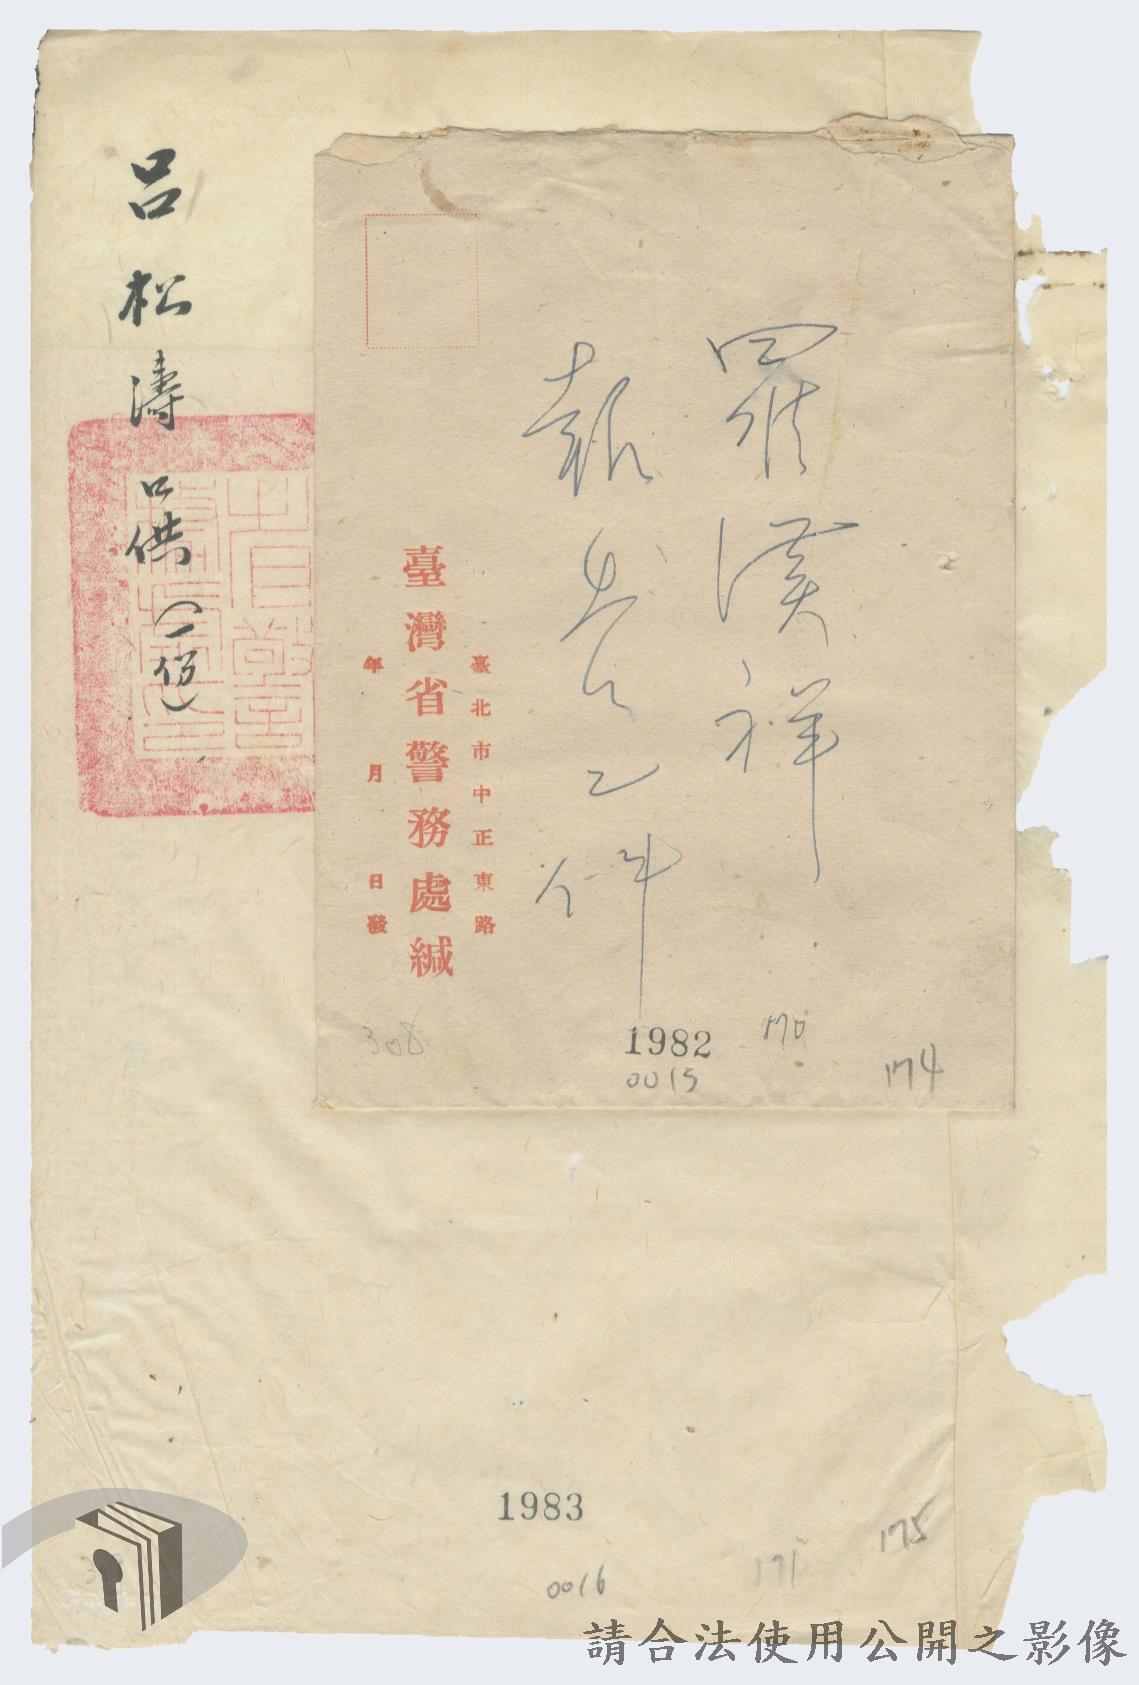 羅漢祥
報告乙件
臺北市中正東路
臺灣省警務處緘
年 月 日發
308
1982
170
0015
174
呂松濤口供(一份)
1983
175
171
0016
請合法使用公開之影像